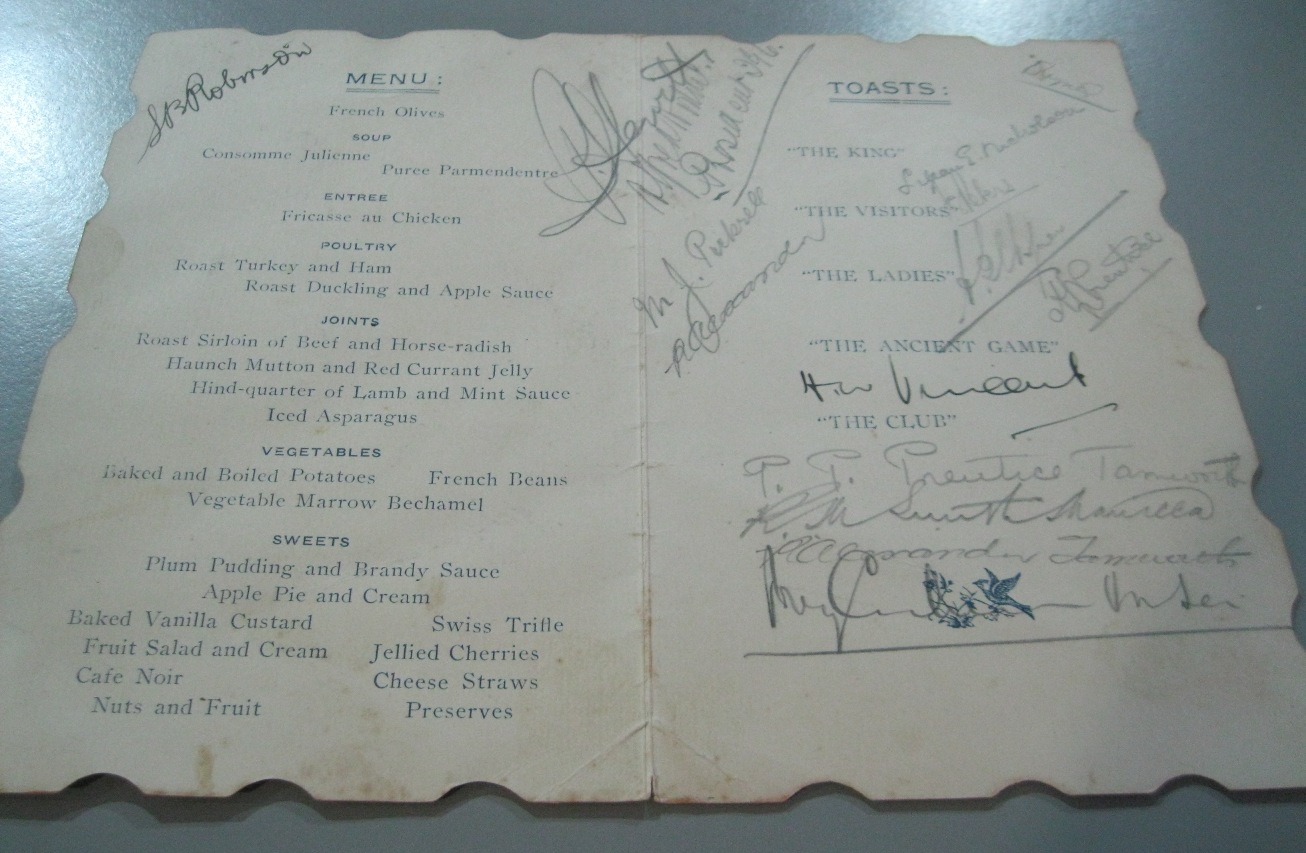 S B Robinson
MENU :
French Olives
SOUP
Consomme Julienne
Puree Parmendentre
ENTREE
Fricasse au Chicken
POULTRY
Roast Turkey and Ham
Roast Duckling and Apple Sauce
JOINTS
Roast Sirloin of Beef and Horse-radish
Haunch Mutton and Red Currant Jelly
Hind-quarter of Lamb and Mint Sauce
Iced Asparagus
VEGETABLES
Baked and Boiled Potatoes French Beans
Vegetable Marrow Bechamel
SWEETS
Plum Pudding and Brandy Sauce
Apple Pie and Cream
Baked Vanilla Custard Swiss Trifle
Fruit Salad and Cream Jellied Cherries
Cafe Noir Cheese Straws
Nuts and Fruit Preserves
M. J.
Alexander
TOASTS :
"THE KING"
Nicholson
"THE VISITORS"
"THE LADIES"
Prentice
"THE ANCIENT GAME"
H. W Vincent
"THE CLUB"
P. P. Prentice Tamworth
R M Smith
Alexander Tamworth